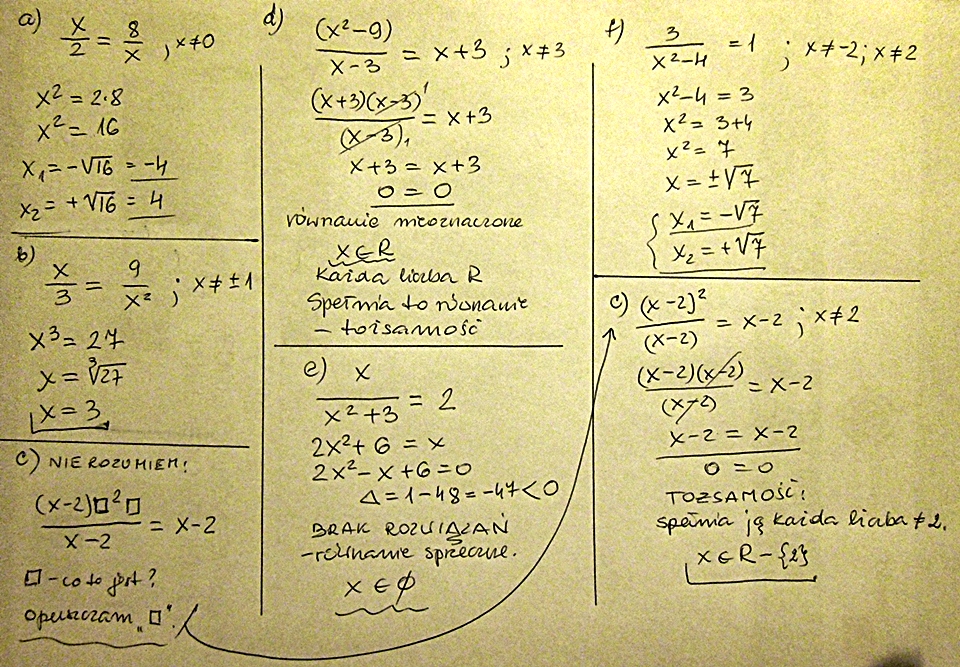 a) x/2 = 8/x , x≠0
x² = 2·8
x² = 16
x₁ = -√16 = -4
x₂ = +√16 = 4
b) x/3 = 9/x² ; x ≠ ±1
x³ = 27
x = ³√27
x = 3
c) NIE ROZUMIEM!
(x-2)□²□/x-2 = x-2
□ - co to jest?
opuszczam „□".
d) (x²-9)/x-3 = x+3 ; x≠3
(x+3)(x-3)¹/(x-3)₁ = x+3
x+3 = x+3
0 = 0
równanie nieoznaczone
x∈R
Każda liczba R
Spełnia to równanie
- tożsamość
e) x/x²+3 = 2
2x²+6 = x
2x²-x+6=0
Δ=1-48=-47<0
BRAK ROZWIĄZAŃ
-równanie sprzeczne.
x ∈ ∅
f) 3/x²-4 = 1 ; x≠-2; x≠2
x²-4 = 3
x² = 3+4
x² = 7
x = ±√7
x₁ = -√7
x₂ = +√7
c) (x-2)²/(x-2) = x-2 ; x≠2
(x-2)(x-2)/(x-2) = x-2
x-2 = x-2
0 = 0
TOŻSAMOŚĆ!
spełnia ją każda liczba ≠2.
x∈R-{2}